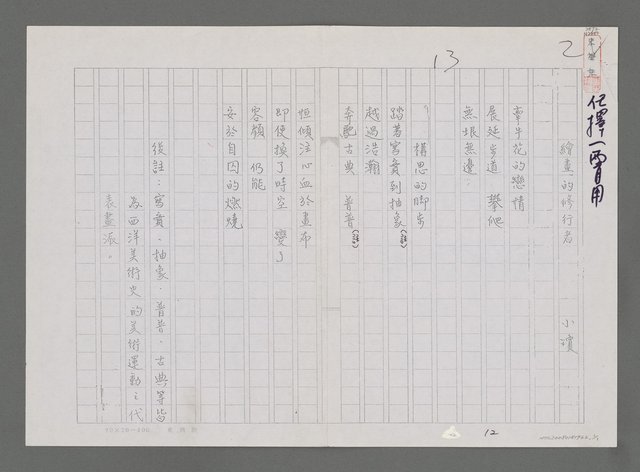 2
13
任擇一費用
繪畫的修行者　小濱
牽牛花的戀情
晨延步道　攀爬
無垠無邊.
構思的腳步
踏著寫實到抽象(註)
越過浩瀚
奔馳古典　普普(註)
恒傾注心血於畫布
即使換了時空　變了
容顏　仍能
安於自囚的燃燒
後註：寫實、抽象、普普、古典等皆
為西洋美術史的美術運動之代
表畫派。
12